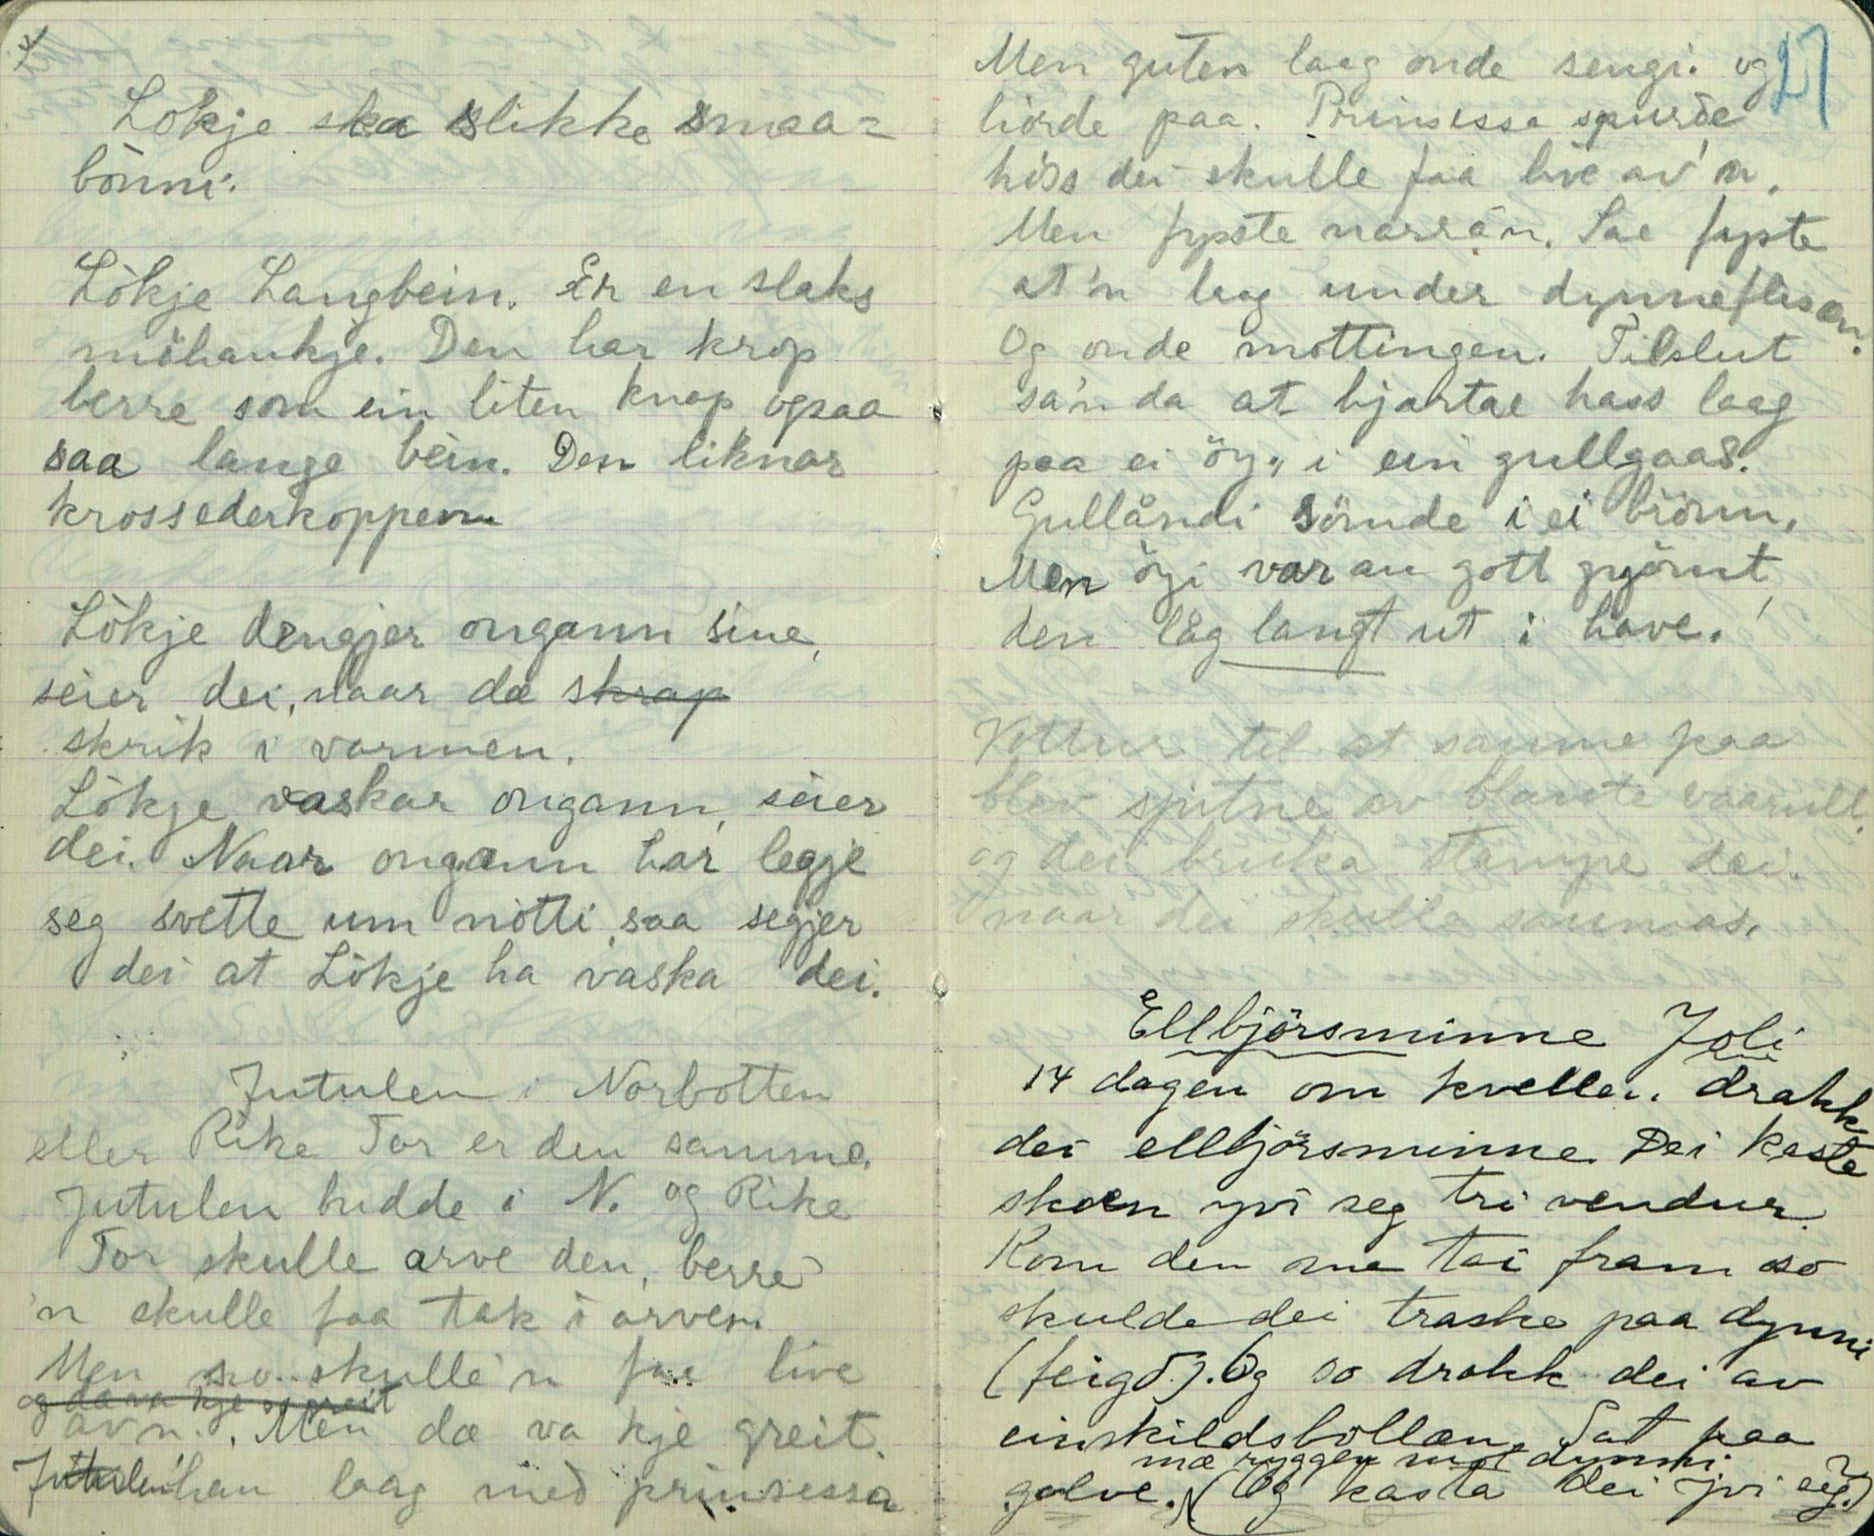 Lökje ska slikke smaa=
bònni.
Lökje Langbein. Er en slaks
möhankje. Den har krop
berre som ein liten knap ogsaa
saa lange bèin. Den liknar
krossederkoppen.
Lökje dengjer ongann sine,
seier dei, naar dæ skrap
skrik i varmen.
Lökje vaskar ongann, seier
dei. Naar ongann har legje
seg svette um nòtti, saa segjer
dei at Lökje ha vaska dei.
Jutulen i Norbotten
eller Rike Tor er den samme.
Jutulen budde i N. og Rike
Tor skulle arve den, berre
'n skulle faa tak i arven.
Men so skulle'n faa live
og da va kje so greit
av'n. Men dæ va kje greit.
Jutulen han laag med prinsessa
27
Men guten laag onde sengi. og
hörde paa. Prinsessa spurde
höss dei skulle faa live av'n.
Men fypste narra'n. Sae fypste
at'n laag under dynneflisæn.
Og onde mottingen. Tilslut
sa'n da at hjartae hass laag
paa ei öy, i ein gullgaas.
Gullåndi sömde i ei brönn.
Men öyi var au gott gjömt,
den låg langt ut i have.
Vottur til at saume paa
blev spitne av blaute vaarull.
og dei bruka stampe dei.
naar dei skulla saumas.
Ellbjörsminne Joli
14 dagen om kvellen. drakk
dei ellbjörsminne. Dei kasta
skoen yvi seg tri vendur.
Kom den me tai fram so
skulde dei traske paa dynni
(feigd.). Og so drakk dei av
einskildsbollan. Sat paa
mæ ryggen mot dynni.
golve. (Og kasta dei yvi seg.)